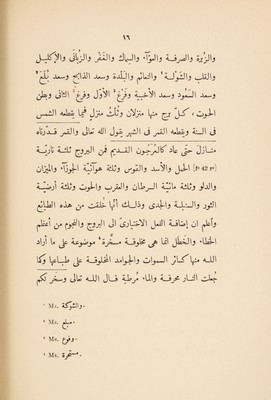 ١٦
والزبرة والصرفة والعوّآء والسماك والغَفْر والزُبانَى والاكليل
والقلب والشَوْلة ¹ والنعائم والبَلْدة وسعد الذابح وسعد بُلَعَ ²
وسعد السعُود وسعد الأخبية وفَرْغ ³ الاوّل وفرغ ³ الثانى وبطن
الحوت، كلّ برج منها منزلان وثُلْث منزل فيما يقطعه الشمس
فى السنة ويقطعه القمر فى الشهر يقول الله تعالى والقمر قدّرناه
منازل حتّى عاد كالعرجون القديم فمن البروج ثلثة ناريّة
[fº 42 rº] الحمل والأسد والقوس وثلثة هوآئيّة الجوزآء والميزان
والدلو وثلثة مائيّة السرطان والعقرب والحوت وثلثة أرضيّة
الثور والسنبلة والجدى وذلك أنّها خُلقت من هذه الطبائع
وأعلم ان إضافة الفعل الاختيارىّ الى البروج والنجوم من أعظم
الخطاء والخَطَل انما هى مخلوقة مسخَّرة ⁴ موضوعة على ما اراد
الله منها كسائر السموات والجوامد المخلوقة على طباعها وكما
جُعلت النار محرقة والماء مُرطبة قال الله تعالى وسخر لكم
¹ Ms. والشوكة.
² Ms. مبلع.
³ Ms. وفوع.
⁴ Ms. مستحرة.